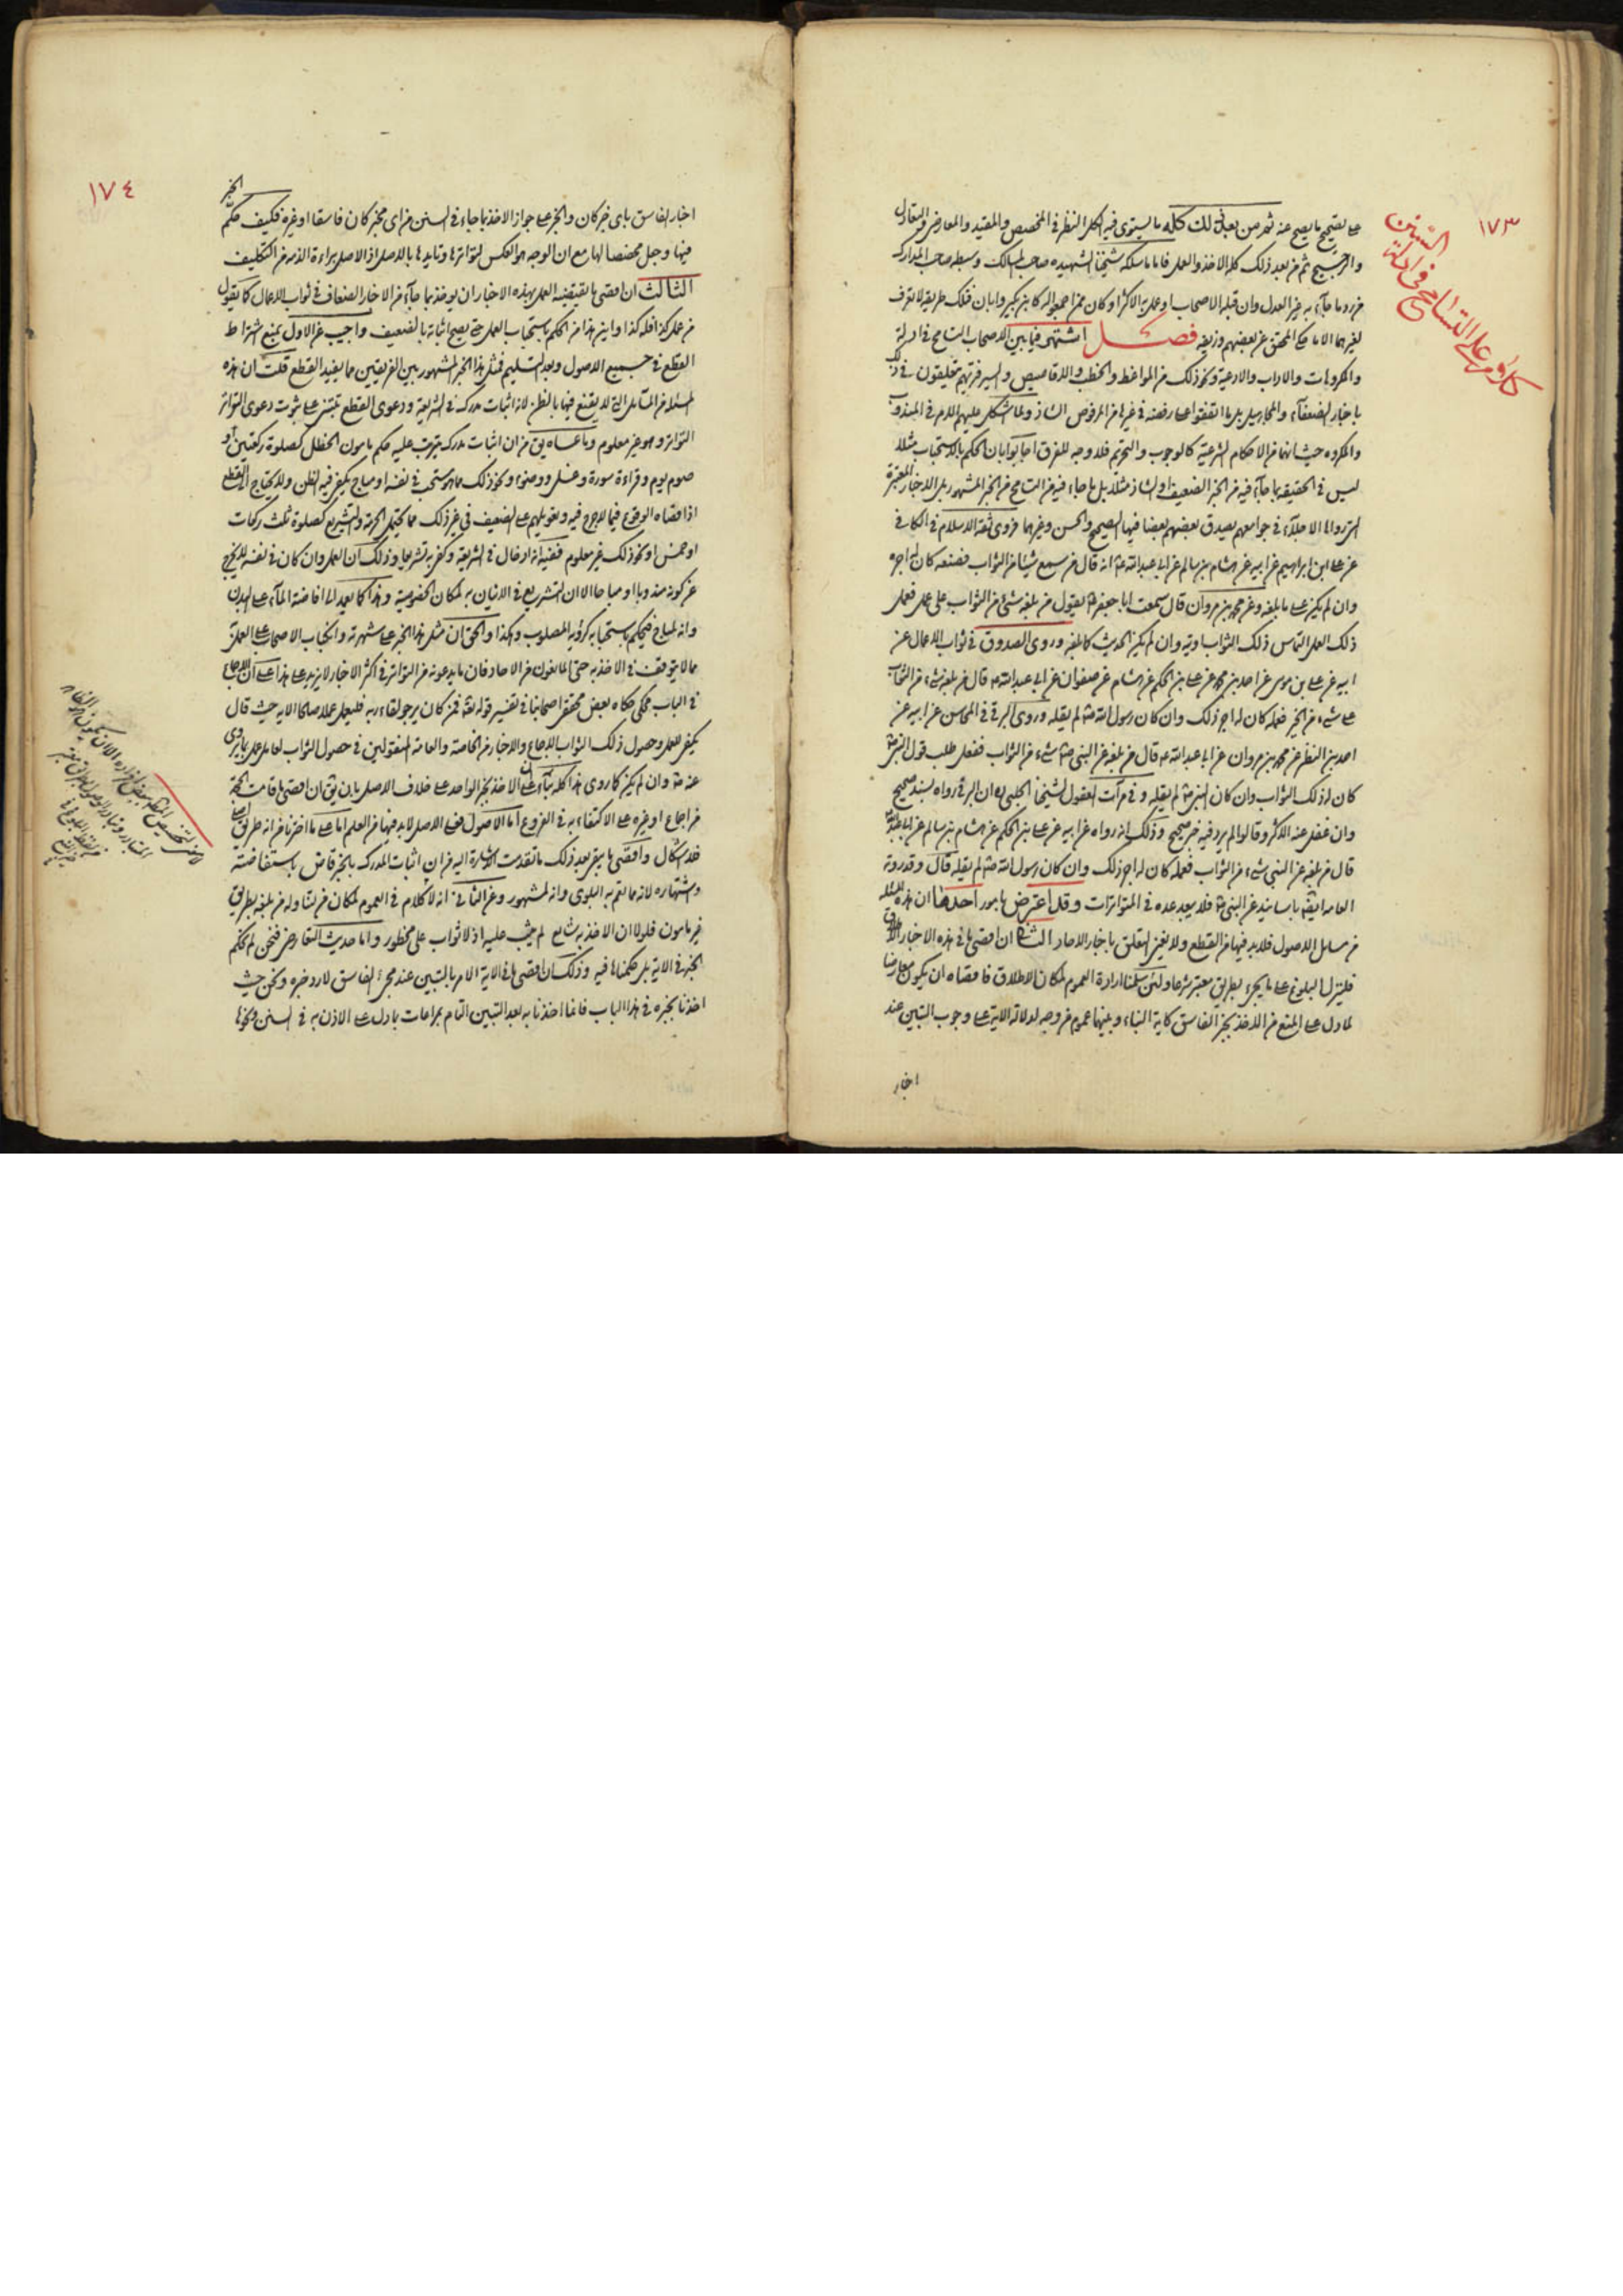 ١٧٣
كلام على التسامح في ادلة السنن
على تصحيح ما يصح عنه ثم من بعد ذلك كله ما يستوى فيه الكل النظر في المخصص والمقيد والمعارض والتعادل
والترجيح ثم من بعد ذلك كله الاخذ والعمل فاما ما سلكه شيخنا الشهيد صاحب المسالك وسبطه صاحب المدارك
من رد ما جاء به غير العدل وان قبله الاصحاب او عمل به الاكثر او كان ممن اجمعوا له كابن بكير وابان فتلك طريقة لا تعرف
لغيرهما الا ما يحكى المحقق عن بعضهم وزيفه فصل اشتهر فيما بين الاصحاب التسامح في ادلة
والمكروهات والاداب والادعية ونحو ذلك من المواعظ والخطب والاقاصيص والسير فتريهم يتعلقون في ذلك
باخبار الضعفاء والمجاهيل بل بما اتفقوا على رفضه في غيرها من المرفوض الشاذ ولما اشكل عليهم الامر في المندوب
والمكروه حيث انهما من الاحكام الشرعية كالوجوب والتحريم فلا وجه للفرق اجابوا بان الحكم بالاستحباب مثلا
ليس في الحقيقة بما جاء فيه من الخبر الضعيف او الشاذ مثلا بل بما جاء فيه من التسامح من الخبر المشهور بل الاخبار المعتبرة
التي رواها الاجلاء في جوامعهم يصدق بعضهم بعضا فيها الصحيح والحسن وغيرهما فروى ثقة الاسلام في الكافي
عن على ابن ابراهيم عن ابيه عن هشام بن سالم عن ابى عبدالله انه قال من سمع شيئا من الثواب فصنعه كان له اجره
وان لم يكن على ما بلغه وعن محمد بن مروان قال سمعت ابا جعفر يقول من بلغه شئ من الثواب على عمل فعمل
ذلك العمل التماس ذلك الثواب اوتيه وان لم يكن الحديث كما بلغه وروى الصدوق في ثواب الاعمال عن
ابيه عن على بن موسى عن احمد بن محمد عن على بن الحكم عن هشام عن صفوان عن ابى عبدالله قال من بلغه شئ من الثواب
على شئ من الخير فعمله كان له اجر ذلك وان كان رسول الله لم يقله وروى البرقي في المحاسن عن ابيه عن
احمد بن النضر عن محمد بن مروان عن ابى عبدالله قال من بلغه عن النبي شئ من الثواب ففعل طلب قول النبي
كان له ذلك الثواب وان كان النبي لم يقله وفي مرآت العقول لشيخنا المجلسي ان البرقي رواه بسند صحيح
وان غفل عنه الاكثر وقالوا لم يرد فيه خبر صحيح وذلك انه رواه عن ابيه عن على بن الحكم عن هشام بن سالم عن ابى عبدالله
قال من بلغه عن النبي شئ من الثواب فعمله كان له اجر ذلك وان كان رسول الله لم يقله قال وقد روته
العامة ايضا باسانيد عن النبي فلا يبعد عده في المتواترات وقد اعترض بامور احدها ان هذه المسئلة
من مسائل الاصول فلا بد فيها من القطع ولا يغني التعلق باخبار الاحاد الثانى ان اقصى ما في هذه الاخبار الاطلاق
فلينزل البلوغ على ما يجئ بطريق معتبر شرعا ولئن سلمنا ارادة العموم لمكان الاطلاق فاقصاه ان يكون معارضا
لما دل على المنع من الاخذ بخبر الفاسق كاية النباء وبينهما عموم من وجه لدلالة الاية على وجوب التبين عند
اخبار
١٧٤
اخبار الفاسق باى خبر كان والخبر على جواز الاخذ بما جاء في السنن من اى مخبر كان فاسقا او غيره فكيف حكم الخبر
فيها وجعل مخصصا لها مع ان الوجه هو العكس لتواترها وتايدها بالاصل اذ الاصل براءة الذمة من التكليف
الثالث ان اقصى ما تقتضيه العمل بهذه الاخبار ان يوخذ بما جاء من الاخبار الضعاف في ثواب الاعمال كما يقول
من عمل كذا فله كذا واين هذا من الحكم باستحباب العمل حتى يصح اثباته بالضعيف واجيب عن الاول بمنع اشتراط
القطع في جميع الاصول وبعد التسليم فمثل هذا الخبر المشهور بين الفريقين مما يفيد القطع قلت ان هذه
المسئلة من المسائل التي لا يقنع فيها بالظن لانه اثبات مدرك في الشريعة ودعوى القطع تبتني على ثبوت دعوى التواتر
التواتر وهو غير معلوم وما عساه يق من ان اثبات مدرك يترتب عليه حكم مامون الخطل كصلوة ركعتين او
صوم يوم وقراءة سورة وغسل ووضوء ونحو ذلك مما هو مستحب في نفسه او مباح يكفي فيه الظن ولا يحتاج الى القطع
اذ اقصاه الوقوع فيما لا حرج فيه وتعويلهم على الضعيف في غير ذلك مما يحتمل الحرمة والتشريع كصلوة ثلث ركعات
او خمس او نحو ذلك غير معلوم ففيه انه ادخال في الشريعة وكفى به تشريعا وذلك ان العمل وان كان في نفسه لا يخرج
عن كونه مندوبا او مباحا الا ان التشريع في الاتيان به لمكان الخصوصية وهذا كما تعمد الى افاضة الماء على البدن
وانه لمباح فيحكم باستحبابه كرؤية المصلوب وهكذا والحق ان مثل هذا الخبر على شهرته وانكباب الاصحاب على العمل به
مما لا يتوقف في الاخذ به حتى المانعون من الاحاد فان ما يدعونه من التواتر في اكثر الاخبار لا يزيد على هذا على ان الاجماع
في الباب محكى حكاه بعض محققي اصحابنا في تفسير قوله تعالى فمن كان يرجو لقاء ربه فليعمل عملا صالحا الاية حيث قال
يكفي للعمل وحصول ذلك الثواب الاجماع والاخبار من الخاصة والعامة المنقولين في حصول الثواب لعامل عمل بما روى
عنه وان لم يكن كما روى هذا كله بناء على ان الاخذ بخبر الواحد على خلاف الاصل بان يق ان اقصى ما قامت الحجة
من اجماع او غيره على الاكتفاء به في الفروع اما الاصول فعلى الاصل لا بد فيها من العلم اما على ما اخترناه من انه طريق
فلا اشكال واقصى ما يبقى بعد ذلك ما تقدمت الاشارة اليه من ان اثبات المدرك بالخبر قاض باستفاضته
واشتهاره لانه مما تعم به البلوى وانه لمشهور وعن الثاني انه لا كلام في العموم لمكان من لتناوله من بلغه بطريق
غير مامون فلولا ان الاخذ به شايع لم يثب عليه اذ لا ثواب على محظور واما حديث التعارض فنحن لم نحكم
الخبر في الاية بل حكمناها فيه وذلك ان اقصى ما في الاية الامر بالتبين عند مجئ الفاسق لا رد خبره ونحن حيث
اخذنا بخبره في هذا الباب فانما اخذنا به بعد التبين التام بمراعات ما دل على الاذن به في السنن ونحوها